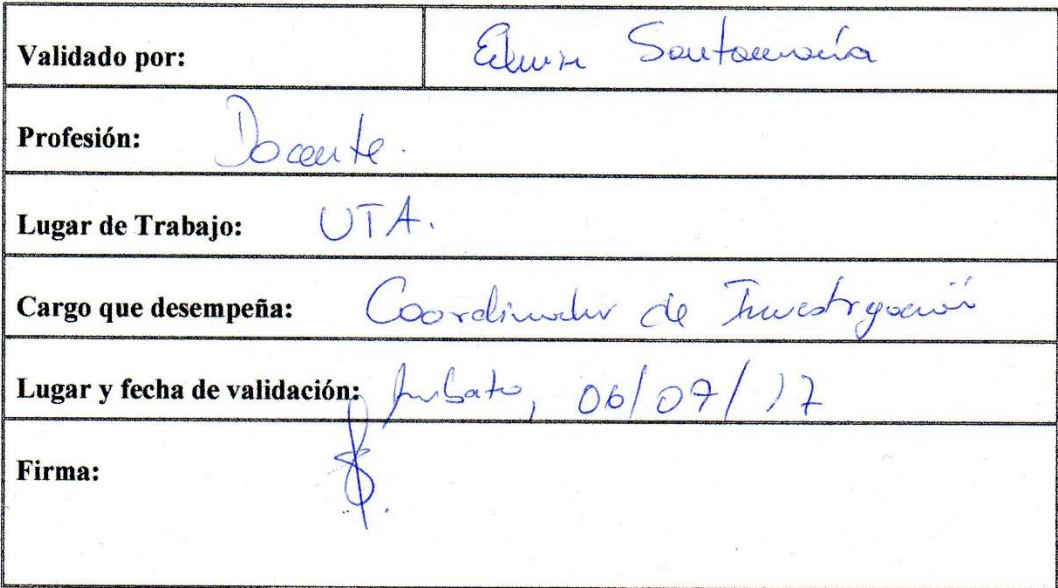 Validado por: Edwin Santamaría
Profesión: Docente.
Lugar de Trabajo: UTA.
Cargo que desempeña: Coordinador de Investigación
Lugar y fecha de validación: Ambato, 06/07/17
Firma: